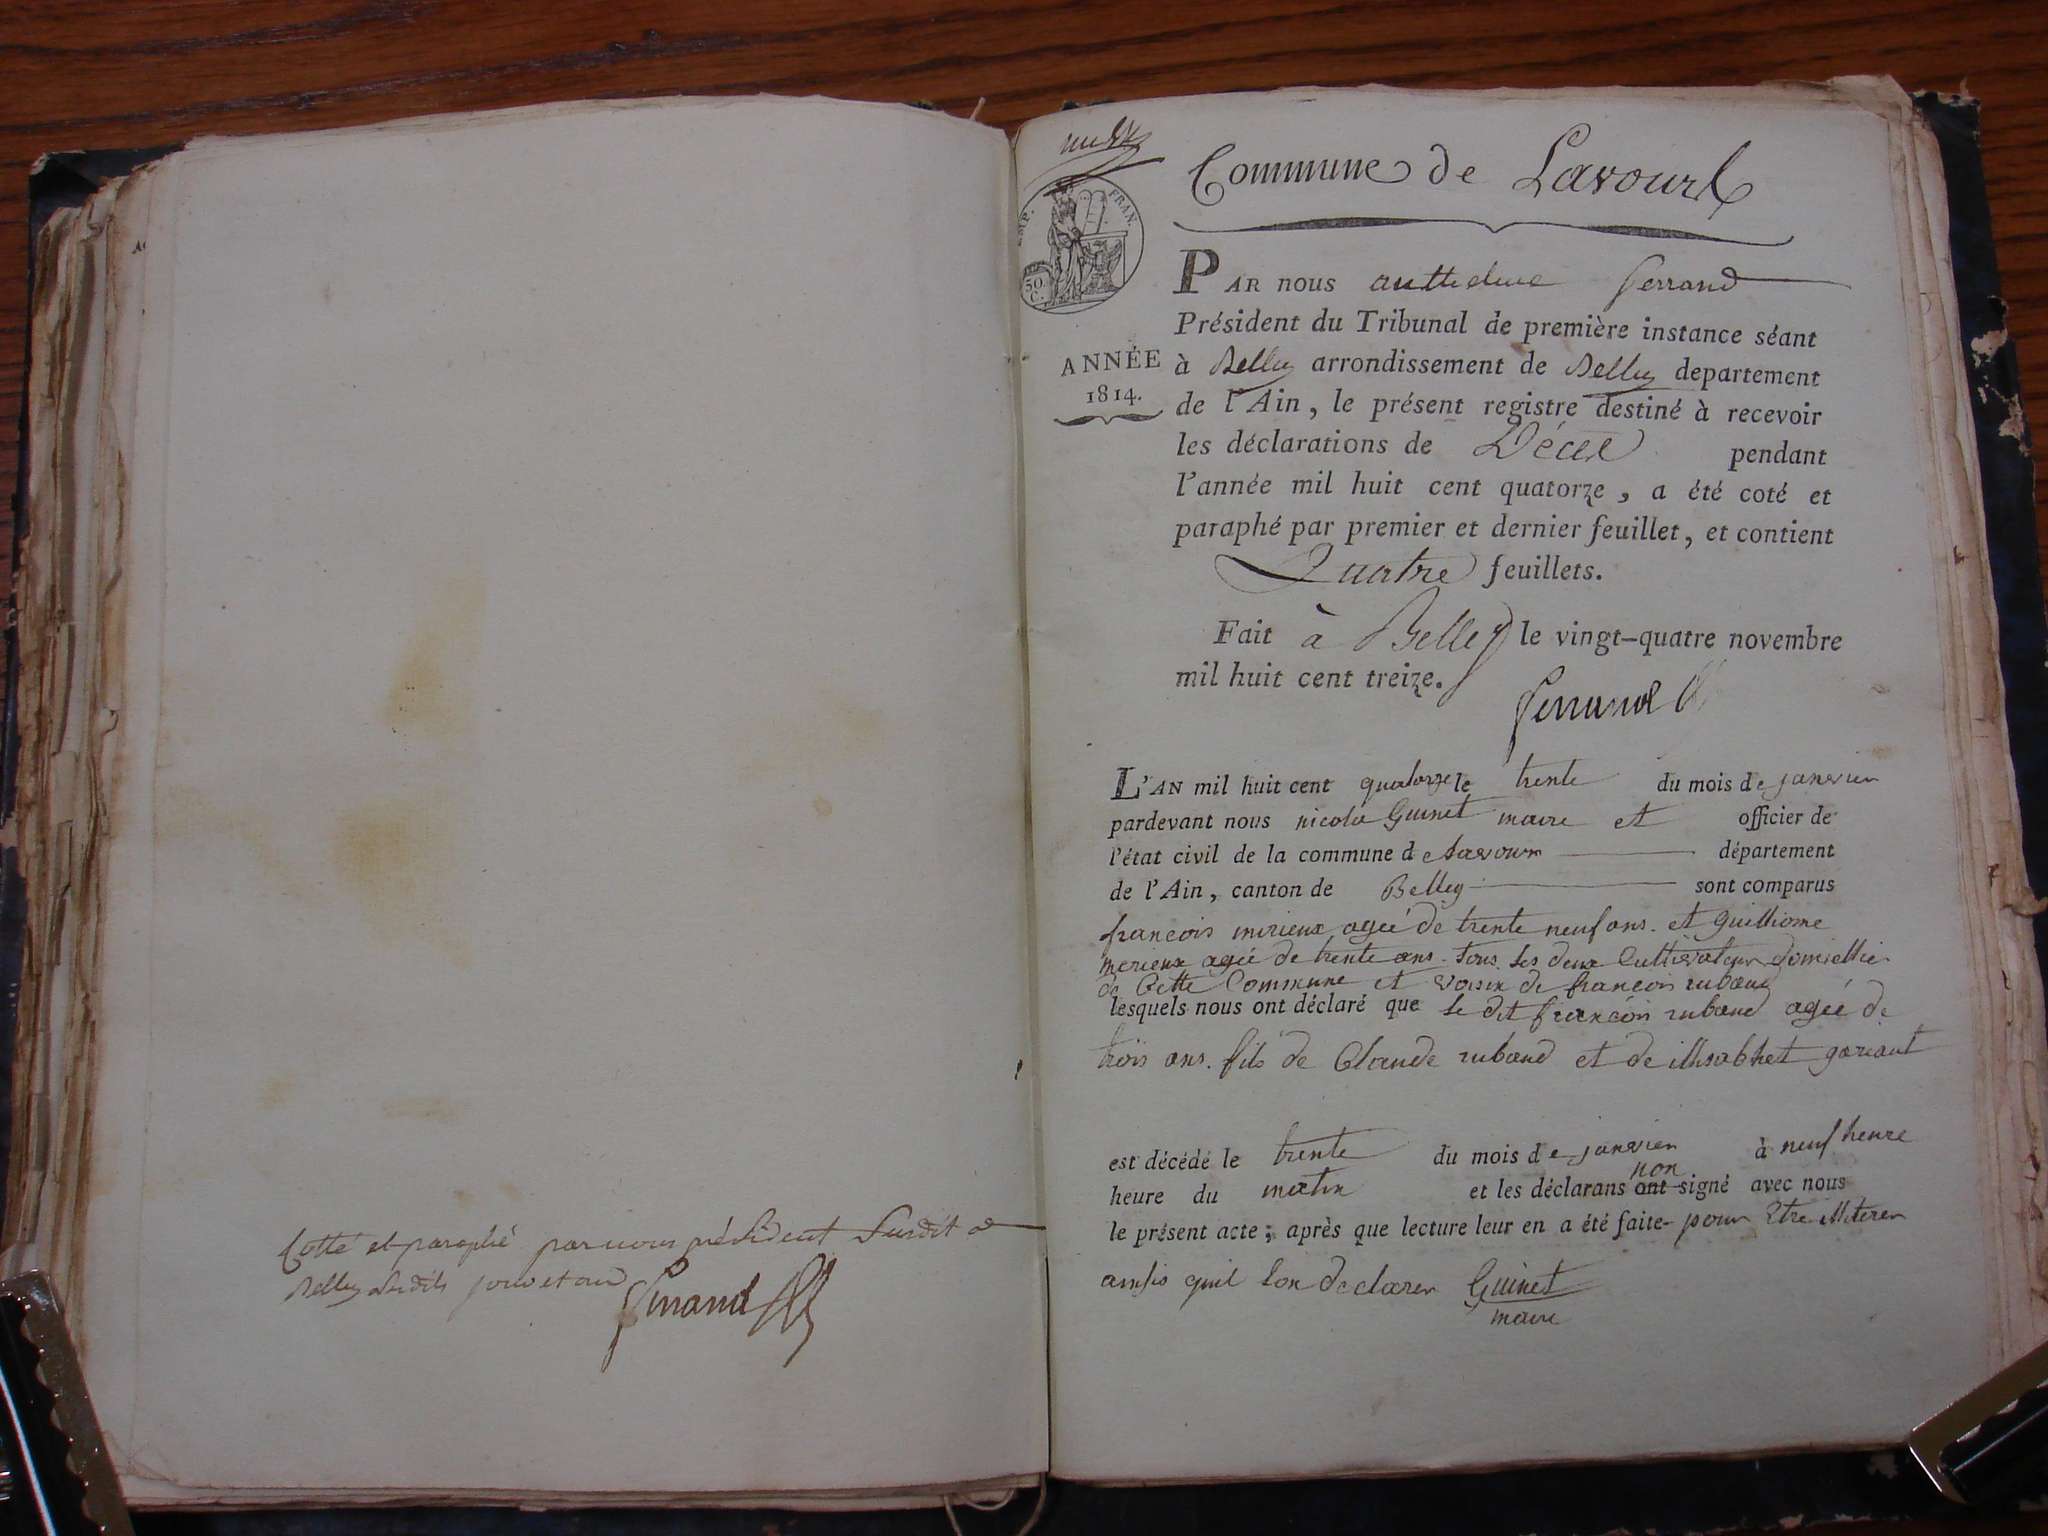 Cotté et paraphé par nous président susdit a
Belley lesdits jour et an
Ferrand
Commune de Lavours
EMP. FRAN.
50
C.
ANNÉE
1814.
PAR NOUS anthelme ferrand
Président du Tribunal de première instance séant
à Belley arrondissement de Belley departement
de l'Ain, le présent registre destiné à recevoir
les déclarations de Décès pendant
l'année mil huit cent quatorze, a été coté et
paraphé par premier et dernier feuillet, et contient
Quatre feuillets.
Fait à Belley le vingt-quatre novembre
mil huit cent treize.
ferrand
L'AN mil huit cent quatorze le trente du mois de janvier
pardevant nous nicola Guinet maire et officier de
l'état civil de la commune de Lavour département
de l'Ain, canton de Belley sont comparus
francois mirieux ageé de trente neuf ans. et Guilliome
merieux ageé de trente ans. tous les deux Cultivateur domiellie
de Cette Commune et voisin de francois rubaud
lesquels nous ont déclaré que le dit francois rubaud ageé de
trois ans. fils de Claude rubaud et de illisabhet goriaut
est décédé le trente du mois de janvier à neuf heure
heure du matin et les déclarans ont non signé avec nous
le présent acte; après que lecture leur en a été faite pour Etre illiterer
ainsis quil lon declarer Guinet
maire